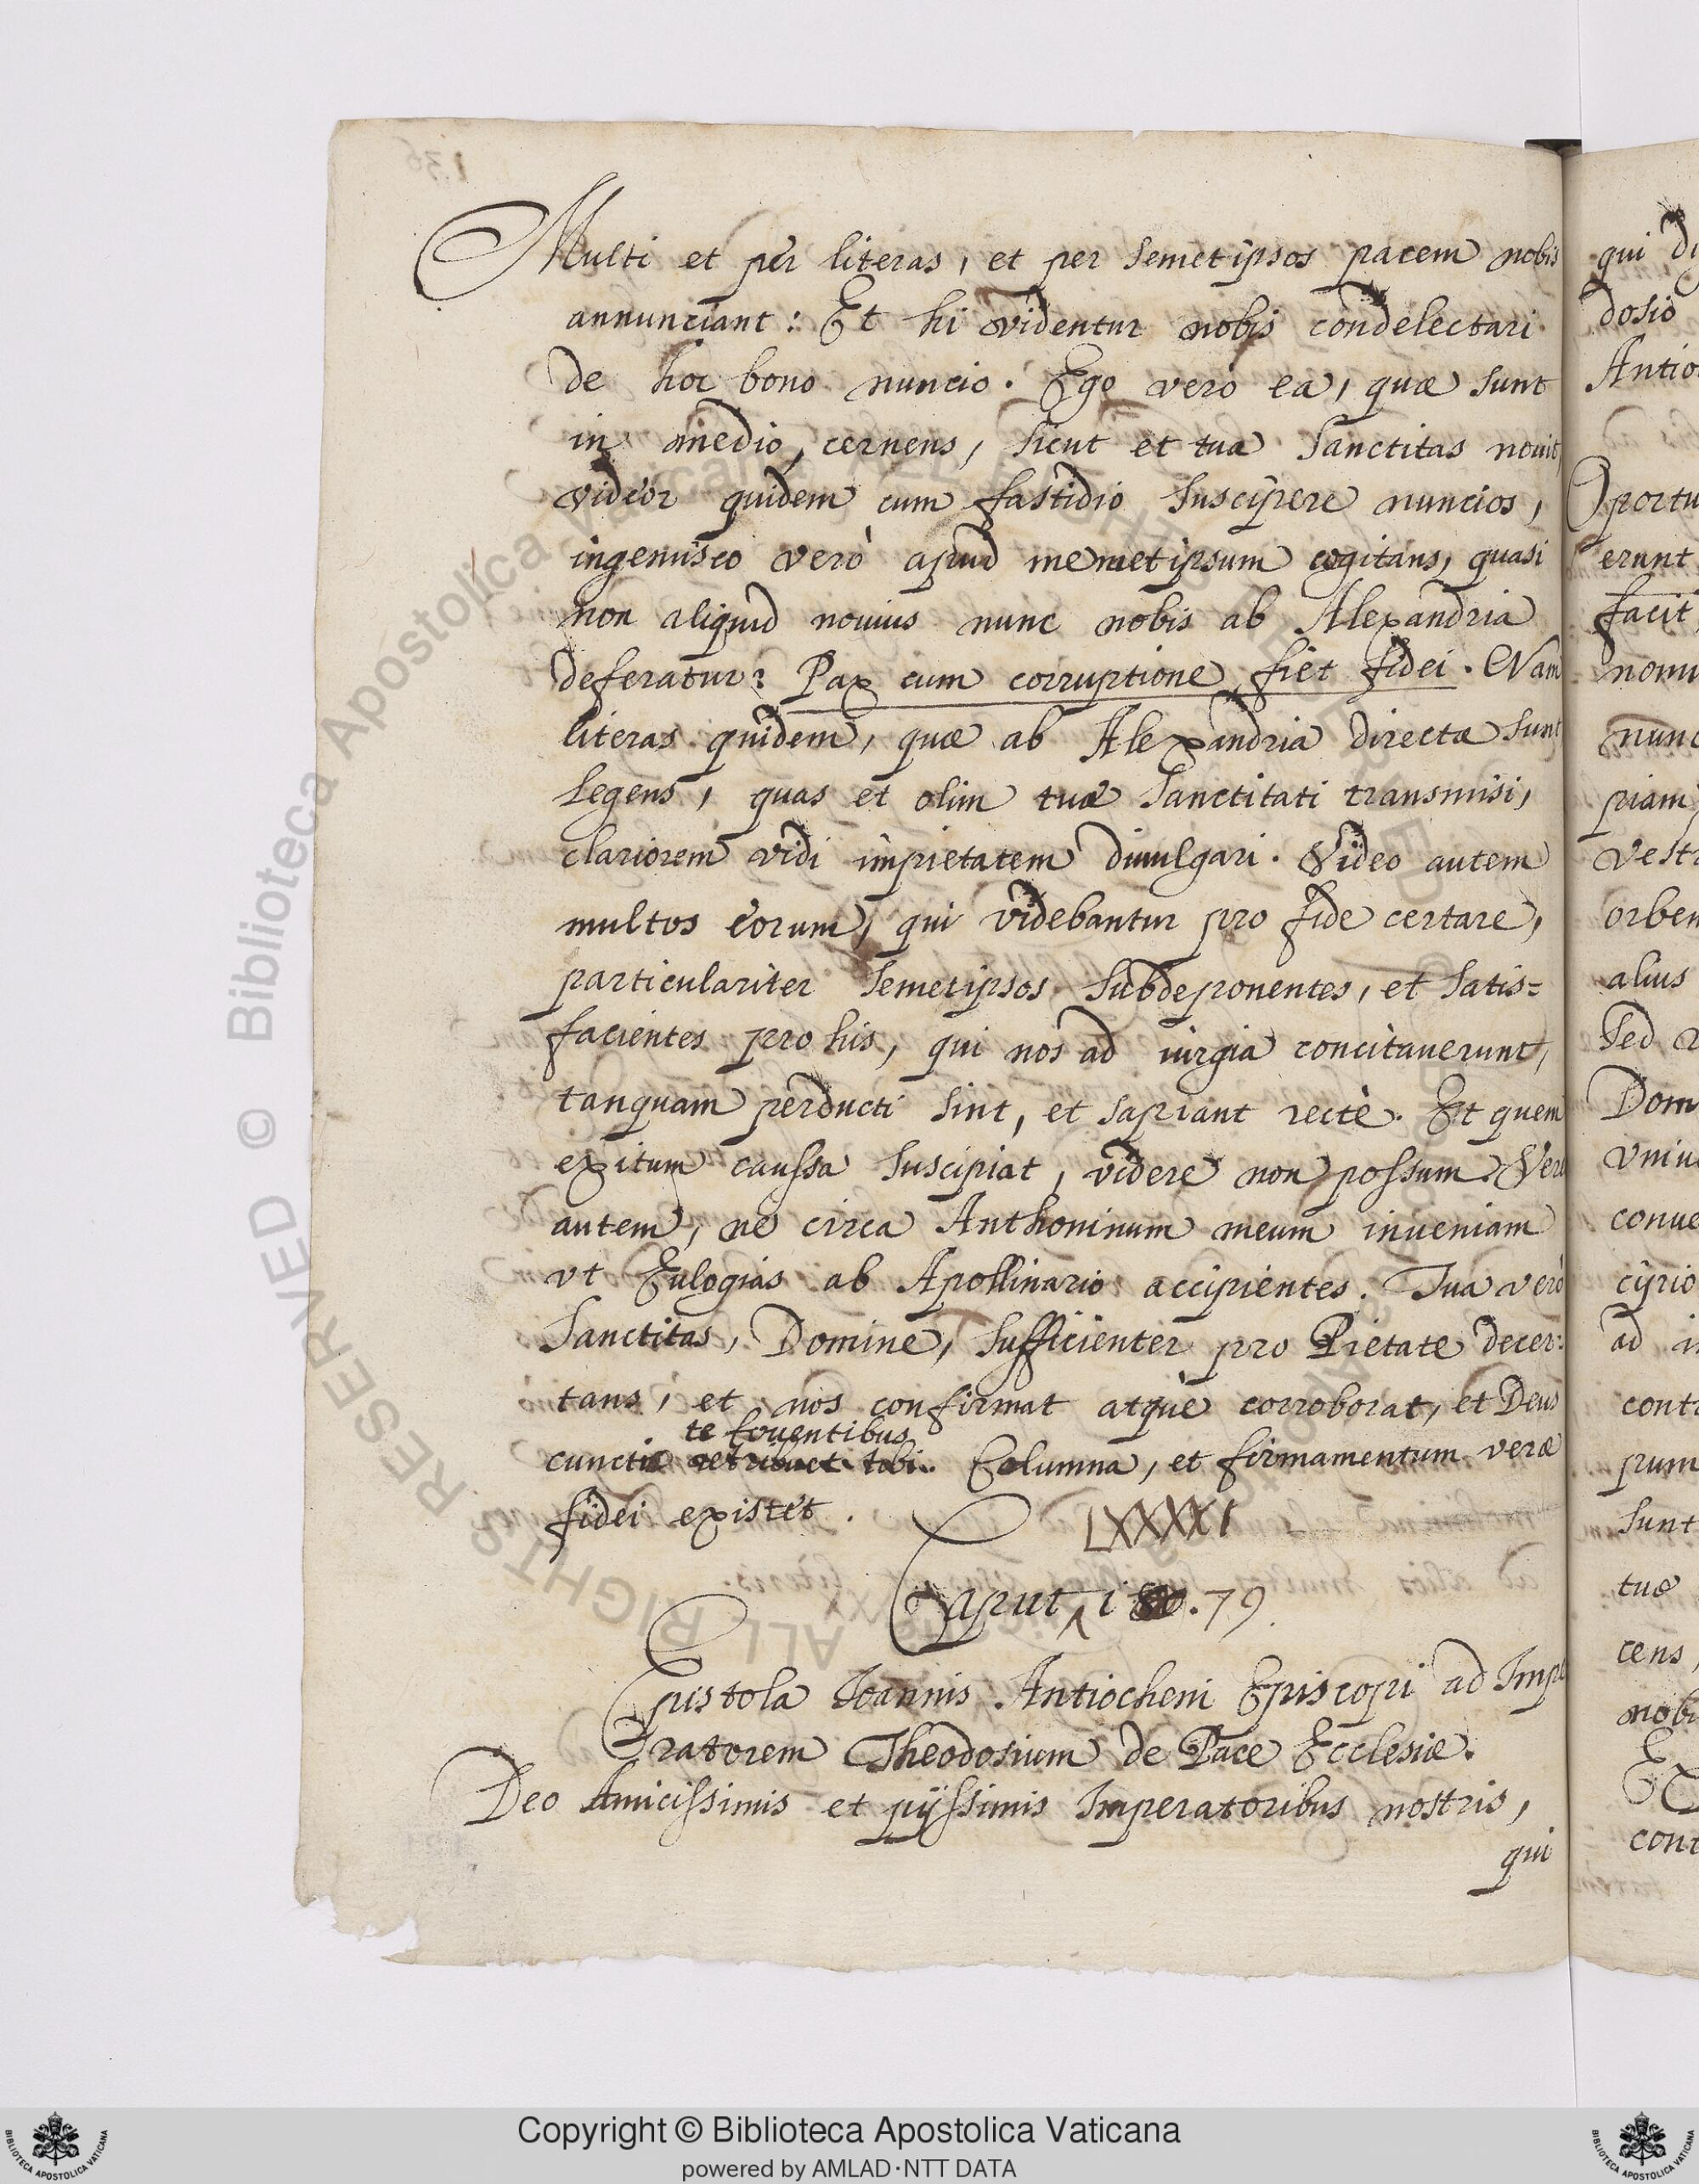 Multi et per literas, et per semetipsos pacem nobis
annunciant: Et hi videntur nobis condelectari
de hoc bono nuncio. Ego verò ea, quæ sunt
in medio, cernens, sicut et tua Sanctitas novit,
videor quidem cum fastidio suscipere nuncios,
ingemisco verò apud memetipsum cogitans, quasi
non aliquid novius nunc nobis ab Alexandria
deferatur: Pax cum corruptione fiet fidei. Nam
literas quidem, quæ ab Alexandria directæ sunt
legens, quas et olim tuæ Sanctitati transmisi,
clariorem vidi impietatem divulgari. Video autem
multos eorum, qui videbantur pro fide certare,
particulariter semetipsos subdeponentes, et satis=
facientes pro his, qui nos ad iurgia concitaverunt,
tanquam perducti sint, et sapiant rectè. Et quem
exitum caussa suscipiat, videre non possum.
autem, ne circa Anthoninum meum inveniam
vt Eulogias ab Apollinario accipientes. Tua verò
Sanctitas, Domine, sufficienter pro Pietate decer:
tans, et nos confirmat atque corroborat, et Deus
te fouentibus
cunctis retribuet tibi. Columna, et firmamentum veræ
fidei existet.
LXXXXI
Caput 79.
Epistola Ioannis Antiocheni Episcopi ad Impe
ratorem Theodosium de Pace Ecclesiæ.
Deo Amicissimis et pijssimis Imperatoribus nostris,
qui
qui
dosio
Antio
erunt
facit
nunc
priam
vestr
orbem
alius
Sed
Dom
conve
cyrio
ad
cont
prum
sunt
tuæ
cens,
nobi
cont
© Biblioteca Apostolica Vaticana
ALL RIGHTS RESERVED
Copyright © Biblioteca Apostolica Vaticana
powered by AMLAD·NTT DATA
BIBLIOTECA APOSTOLICA VATICANA
BIBLIOTECA APOSTOLICA VATICANA